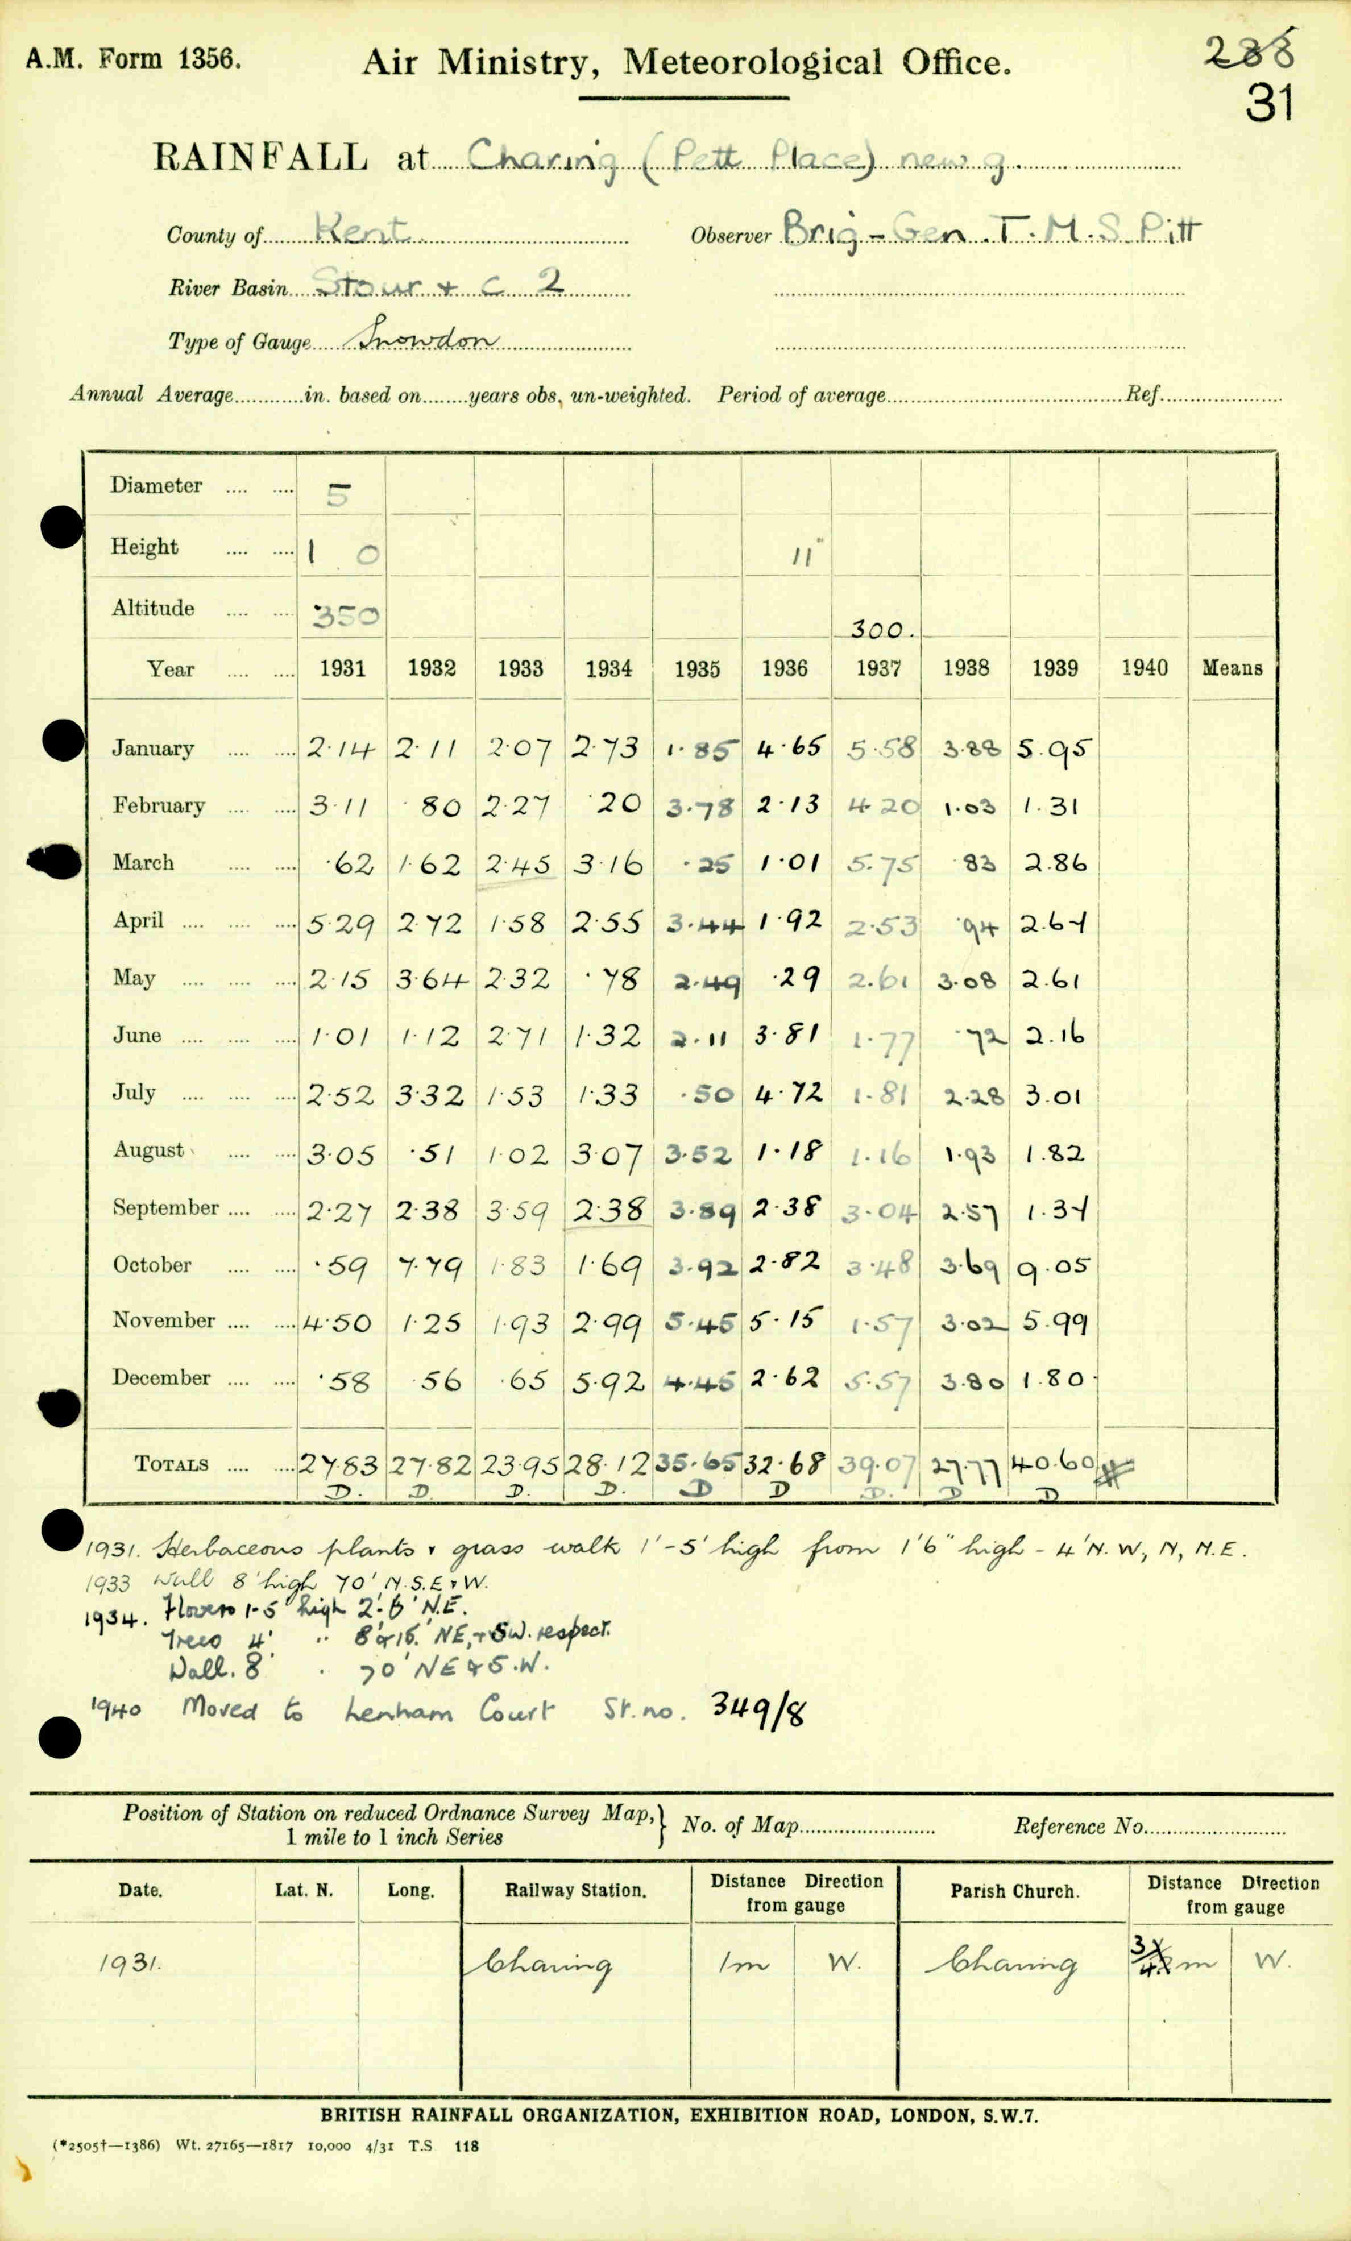 A.M. Form 1356.
Air Ministry, Meteorological Office.
31
RAINFALL at Charing (Pett Place) new g.
County of Kent
Observer Brig-Gen. T.M.S. Pitt
River Basin Stour + C 2
Type of Gauge Snowdon
Annual Average in. based on years obs, un-weighted. Period of average Ref.
Diameter 5
Height 1 0 11"
Altitude 350 300.
Year 1931 1932 1933 1934 1935 1936 1937 1938 1939 1940 Means
January 2·14 2·11 2·07 2·73 1·85 4·65 5·58 3·88 5.95
February 3·11 ·80 2·27 ·20 3·78 2·13 4·20 1·03 1.31
March ·62 1·62 2·45 3·16 ·25 1·01 5·75 ·83 2.86
April 5·29 2·72 1·58 2·55 3·44 1·92 2·53 ·94 2.64
May 2·15 3·64 2·32 ·78 2·49 ·29 2·61 3·08 2.61
June 1·01 1·12 2·71 1·32 2·11 3·81 1·77 ·72 2.16
July 2·52 3·32 1·53 1·33 ·50 4·72 1·81 2·28 3.01
August 3·05 ·51 1·02 3·07 3·52 1·18 1·16 1·93 1.82
September 2·27 2·38 3·59 2·38 3·89 2·38 3·04 2·57 1.34
October ·59 7·79 1·83 1·69 3·92 2·82 3·48 3·69 9.05
November 4·50 1·25 1·93 2·99 5·45 5·15 1·57 3·02 5.99
December ·58 ·56 ·65 5·92 4·45 2·62 5·57 3·80 1.80
TOTALS 27·83 27·82 23·95 28·12 35·65 32·68 39·07 27·77 40.60
D. D. D. D. D D D. D D
1931. Herbaceous plants & grass walk 1'-5' high from 1'6" high - 4' N.W, N, N.E.
1933 Wall 8' high 70' N.S.E & W.
1934. Flowers 1-5' high 2'-6' N.E.
Trees 4' " 8' & 15' NE, & SW. respect.
Wall. 8' 70' NE & S.W.
1940 Moved to Lenham Court St. no. 349/8
Position of Station on reduced Ordnance Survey Map, 1 mile to 1 inch Series } No. of Map Reference No.
Date. Lat. N. Long. Railway Station. Distance Direction from gauge Parish Church. Distance Direction from gauge
1931. Charing 1m W. Charing 3/4 m W.
BRITISH RAINFALL ORGANIZATION, EXHIBITION ROAD, LONDON, S.W.7.
(*2505†—1386) Wt. 27165—1817 10,000 4/31 T.S 118